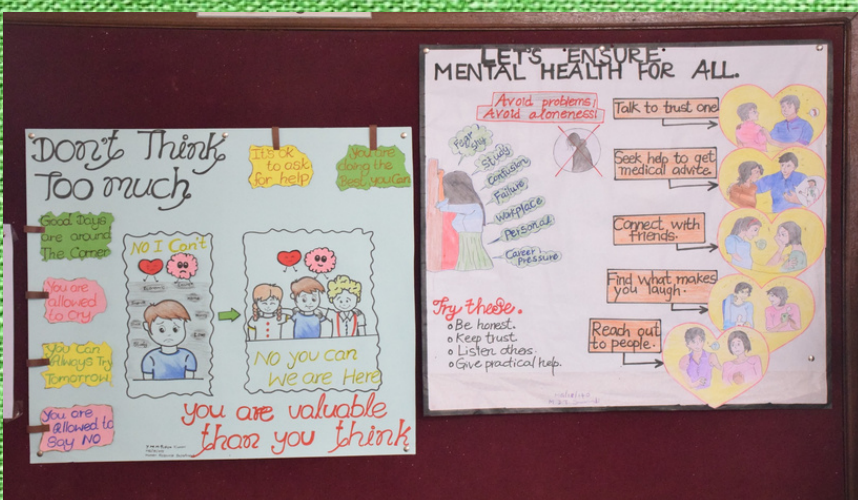 DON'T Think
Too much
It's ok
to ask
for help
You are
doing the
Best you Can
Good Days
are around
The Corner
You are
allowed
to Cry
You Can
Always Try
Tomorrow
You are
allowed to
Say NO
No I Can't
No you can
We are Here
you are valuable
than you think
LET'S ENSURE
MENTAL HEALTH FOR ALL.
Avoid problems!
Avoid aloneness!
Study
Confusion
Failure
Workplace
Personal
Career
Pressure
Talk to trust one
Seek help to get
medical advite.
Connect with
friends.
Find what makes
you laugh.
Reach out
to people.
Try these.
Be honest.
Keep trust
Listen others.
Give practical help.